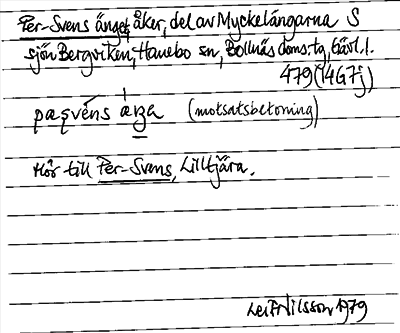 Per-Svens änget, åker, del av Myckelångarna S
sjön Bergviken, Hanebo sn, Bollnäs doms. tg, Gävl. l.
479 (14G7j)
pæṣvéns ǽŋa (motsatsbetoning)
Hör till Per-Svens, Lilltjära.
Leif Nilsson 1979